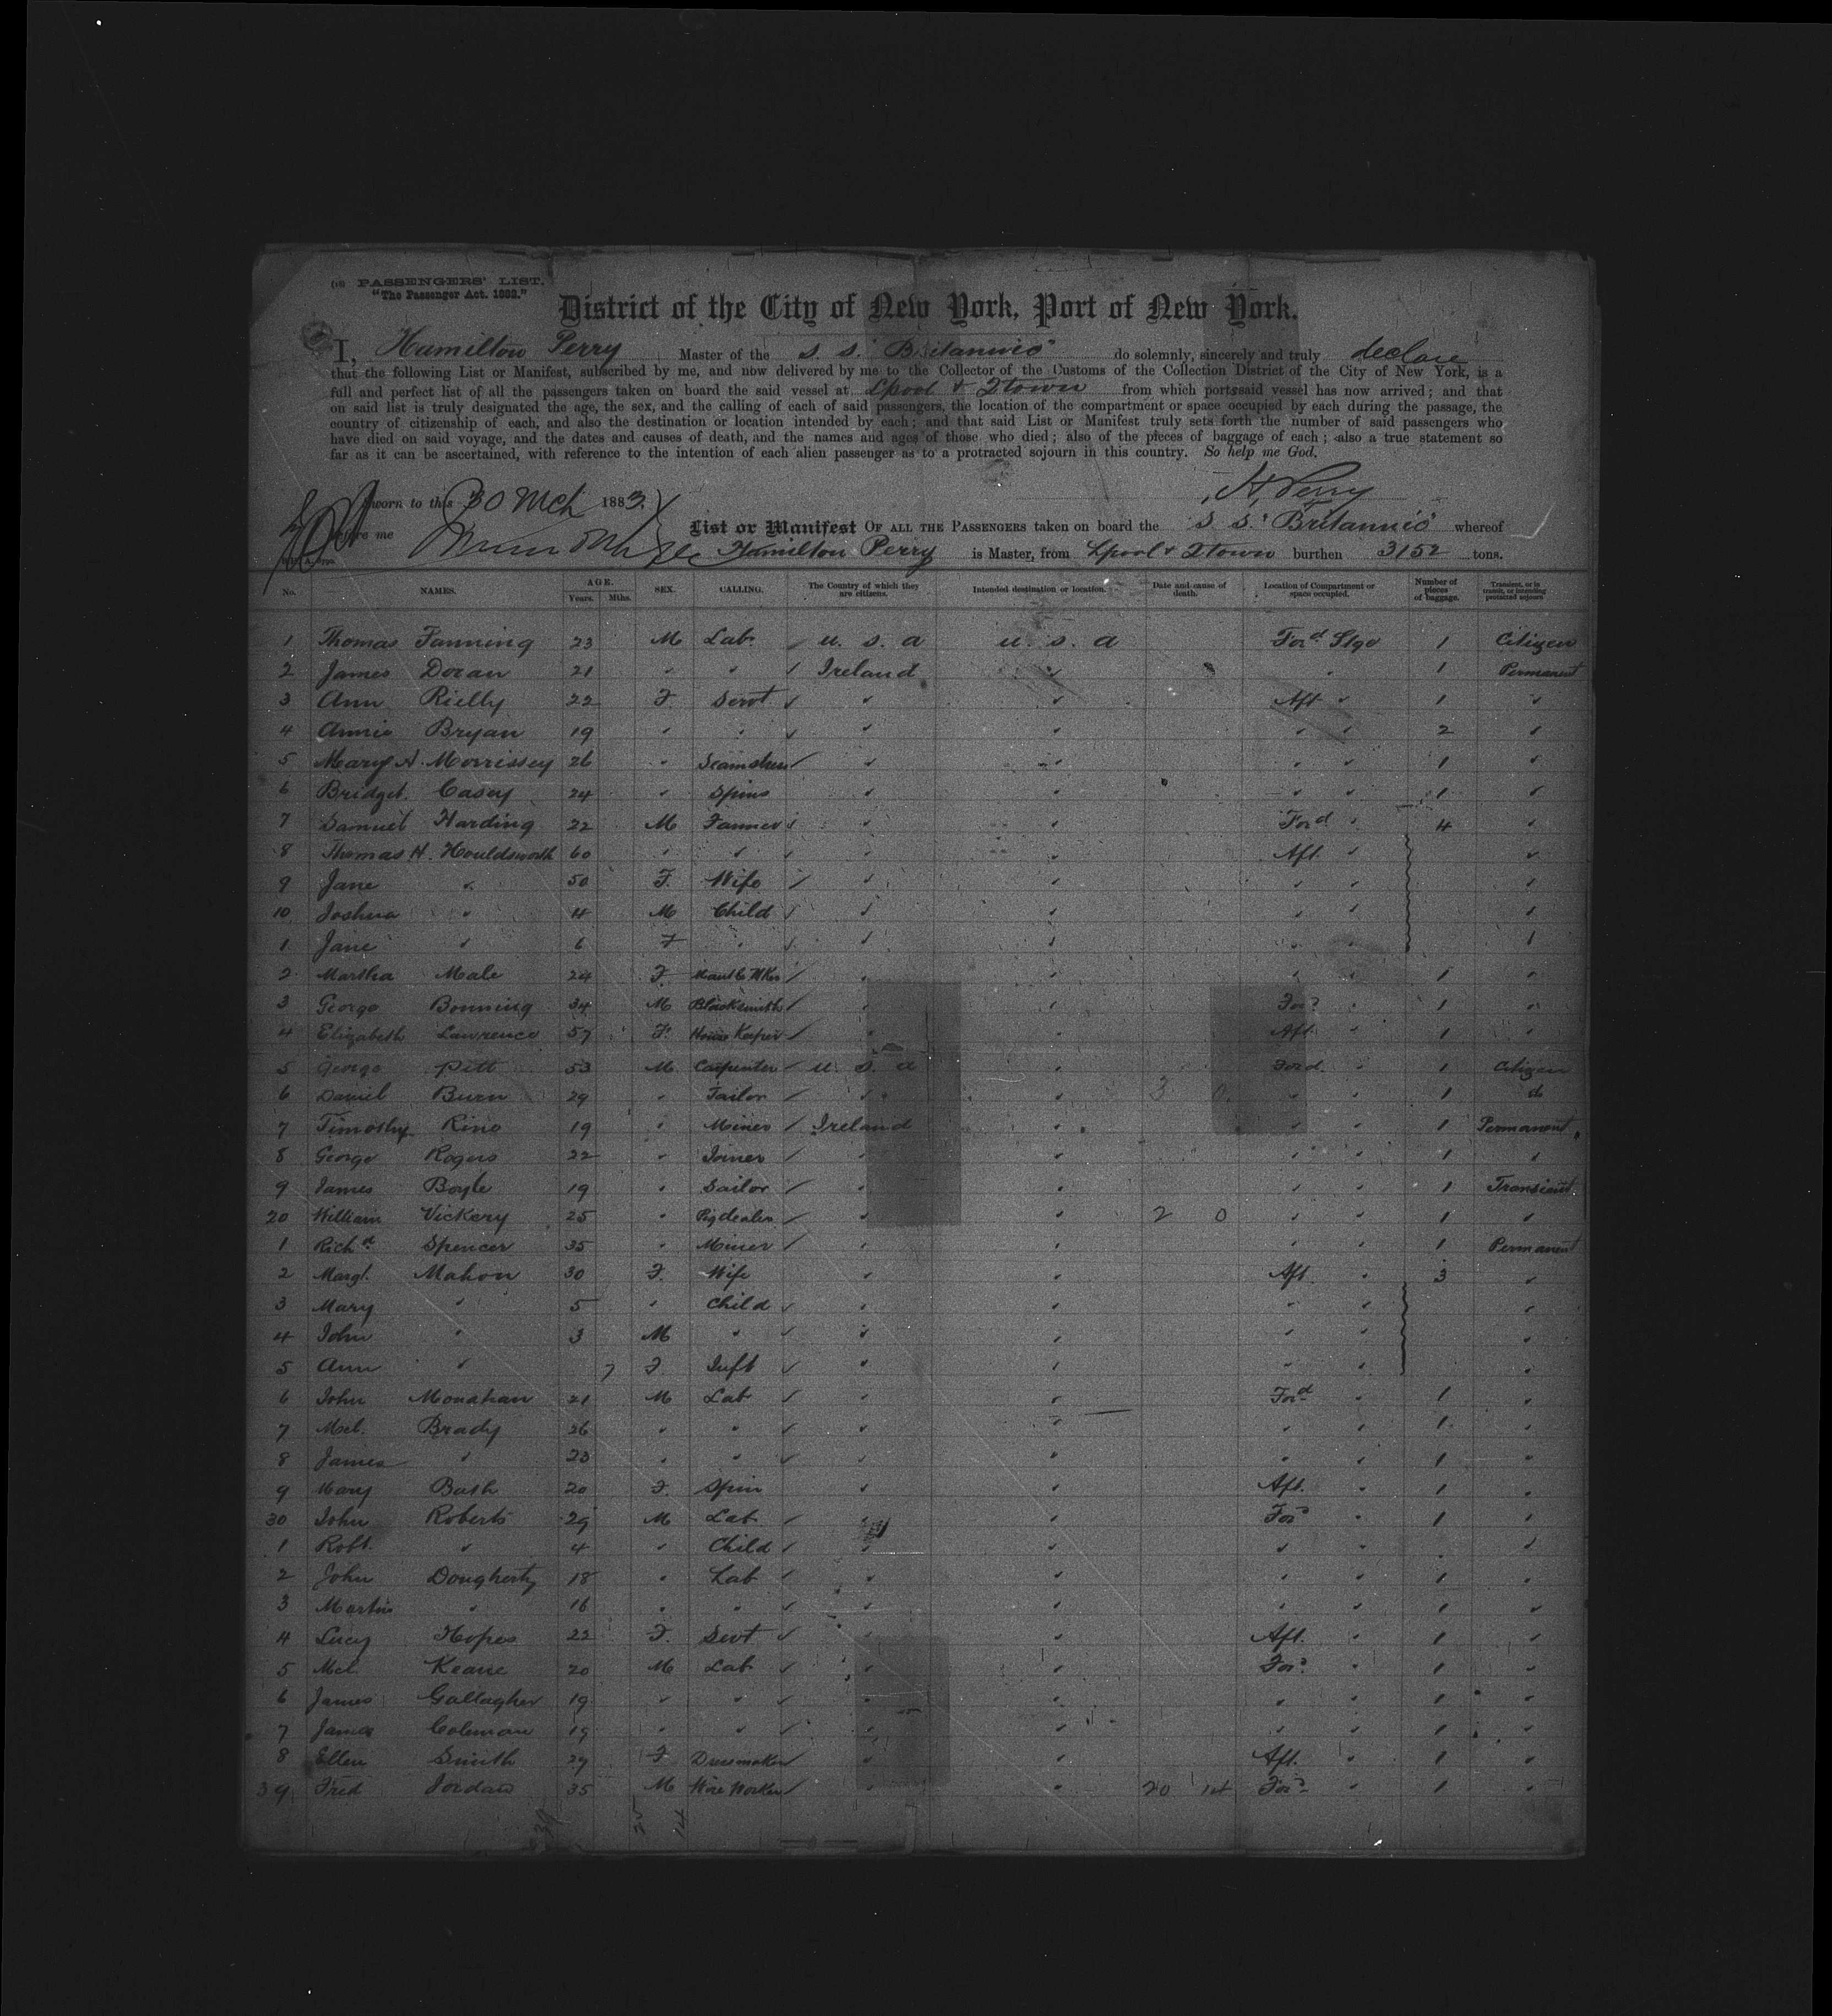 (18) PASSENGERS' LIST.
"The Passenger Act. 1882."
District of the City of New York, Port of New York.
I, Hamilton Perry Master of the S. S. "Britannic" do solemnly, sincerely and truly declare
that the following List or Manifest, subscribed by me, and now delivered by me to the Collector of the Customs of the Collection District of the City of New York, is a
full and perfect list of all the passengers taken on board the said vessel at Lpool & Qtown from which port said vessel has now arrived; and that
on said list is truly designated the age, the sex, and the calling of each of said passengers, the location of the compartment or space occupied by each during the passage, the
country of citizenship of each, and also the destination or location intended by each; and that said List or Manifest truly sets forth the number of said passengers who
have died on said voyage, and the dates and causes of death, and the names and ages of those who died; also of the pieces of baggage of each; also a true statement so
far as it can be ascertained, with reference to the intention of each alien passenger as to a protracted sojourn in this country. So help me God.
H Perry
Sworn to this 30 Mch 1883.
before me
List or Manifest OF ALL THE PASSENGERS taken on board the S. S. "Britannic" whereof
Hamilton Perry is Master, from Lpool & Qtown burthen 3152 tons.
No. NAMES. AGE. Years. Mths. SEX. CALLING. The Country of which they are citizens. Intended destination or location. Date and cause of death. Location of Compartment or space occupied. Number of pieces of baggage. Transient, or in transit, or intending protracted sojourn
1 Thomas Fanning 23 M Lab. U. S. A U. S. A Ford Stge 1 Citizen
2 James Doran 21 " " Ireland " " 1 Permanent
3 Ann Rielly 22 F. Servt " " Aft " 1 "
4 Annie Bryan 19 " " " " " " 2 "
5 Mary A. Morrissey 26 " Seamstress " " " " 1 "
6 Bridget Casey 24 " Spins " " " " 1 "
7 Samuel Harding 22 M Farmer " " Ford " 4 "
8 Thomas H. Houldsworth 60 " " " " Aft. " "
9 Jane " 50 F. Wife " " " " "
10 Joshua " 4 M Child " " " " "
1 Jane " 6 F " " " " " "
2 Martha Male 24 F. Mantle Mkr " " " " 1 "
3 George Bonning 34 M Blacksmith " " For'd " 1 "
4 Elizabeth Lawrence 57 F. House Keeper " " Aft. " 1 "
5 George Pitt 53 M Carpenter U. S. A " Ford. " 1 Citizen
6 Daniel Burn 29 " Tailor " " " " 1 do
7 Timothy Rino 19 " Miner Ireland " " " 1 Permanent
8 George Rogers 22 " Joiner " " " " 1 "
9 James Boyle 19 " Sailor " " " " 1 Transient
20 William Vickery 25 " Pigdealer " " 2 0 " " 1 "
1 Richd Spencer 35 " Miner " " " " 1 Permanent
2 Margt. Mahon 30 F. Wife " " Aft. " 3 "
3 Mary " 5 " Child " " " " "
4 John " 3 M " " " " " "
5 Ann " 7 F Inft " " " " "
6 John Monahan 21 M Lab " " Ford " 1 "
7 Mel. Brady 26 " " " " " " 1 "
8 James " 23 " " " " " " 1 "
9 Mary Bush 20 F. Spin " " Aft. " 1 "
30 John Roberts 29 M Lab " " For'd " 1 "
1 Robt. " 4 " Child " " " " "
2 John Dougherty 18 " Lab " " " " 1 "
3 Martin " 16 " " " " " " 1 "
4 Lucy Hopes 22 F. Servt " " Aft. " 1 "
5 Mcl. Keane 20 M Lab " " For'd " 1 "
6 James Gallagher 19 " " " " " " 1 "
7 James Coleman 19 " " " " " " 1 "
8 Ellen Smith 27 F Dressmaker " " Aft. " 1 "
39 Fred Jordan 35 M Wire Worker " " 20 14 For'd " 1 "
39 25 14